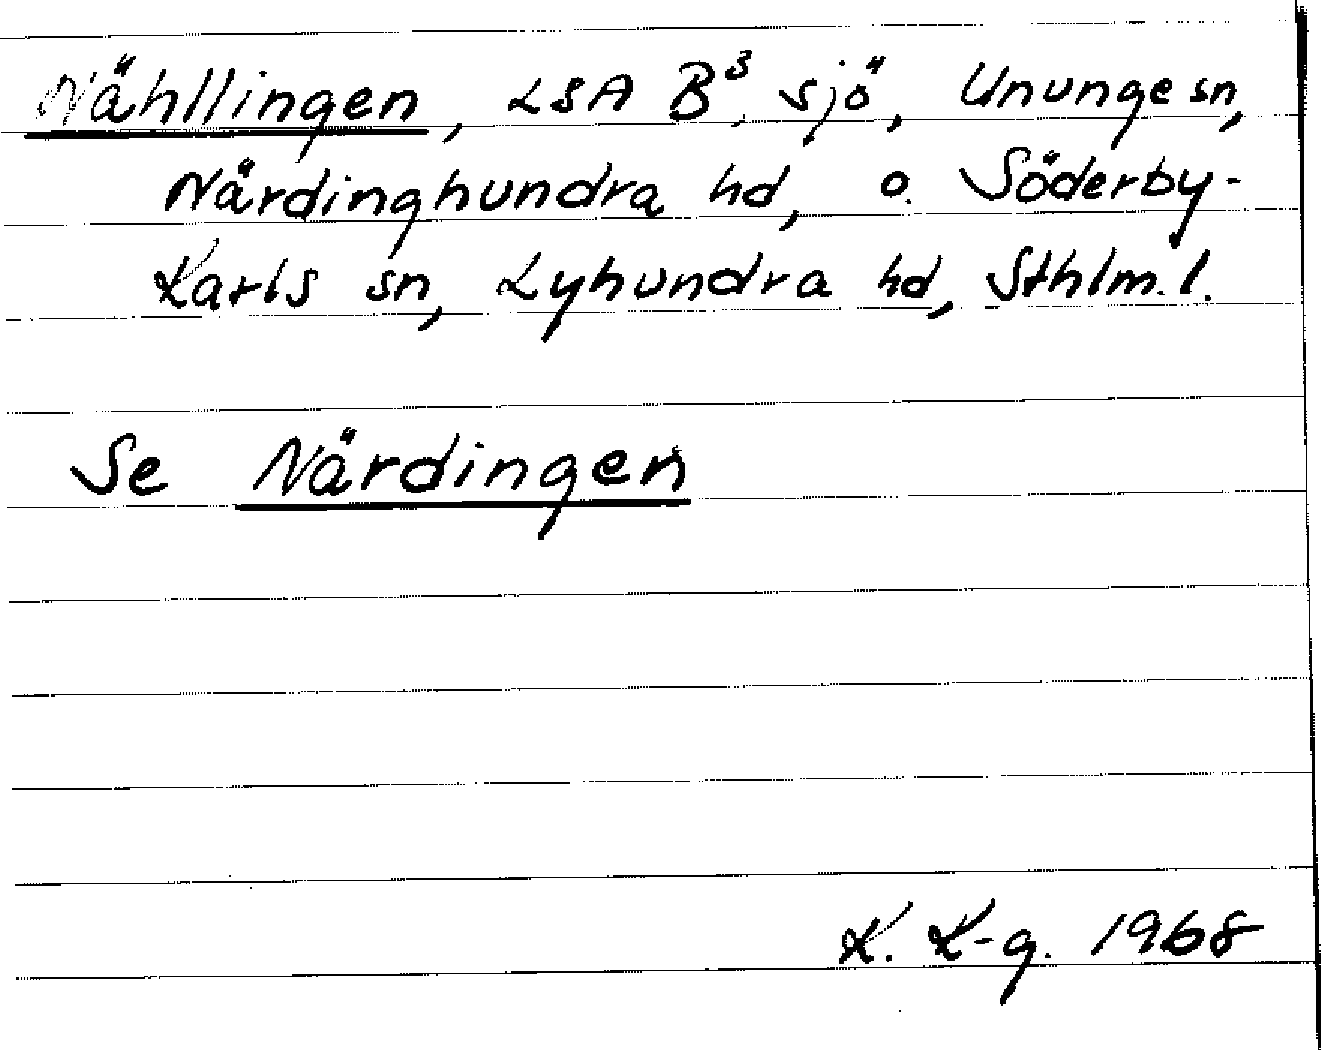 Nähllingen, LSA B³, sjö, Ununge sn,
Närdinghundra hd, o. Söderby-
Karls sn, Lyhundra hd, Sthlm. l.
Se Närdingen
K. K-g. 1968